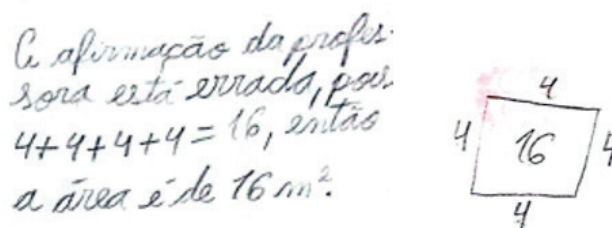 A afirmação da profes-
sora está errada, pois
4+4+4+4=16, então
a área é de 16 m².
4
4
16
4
4